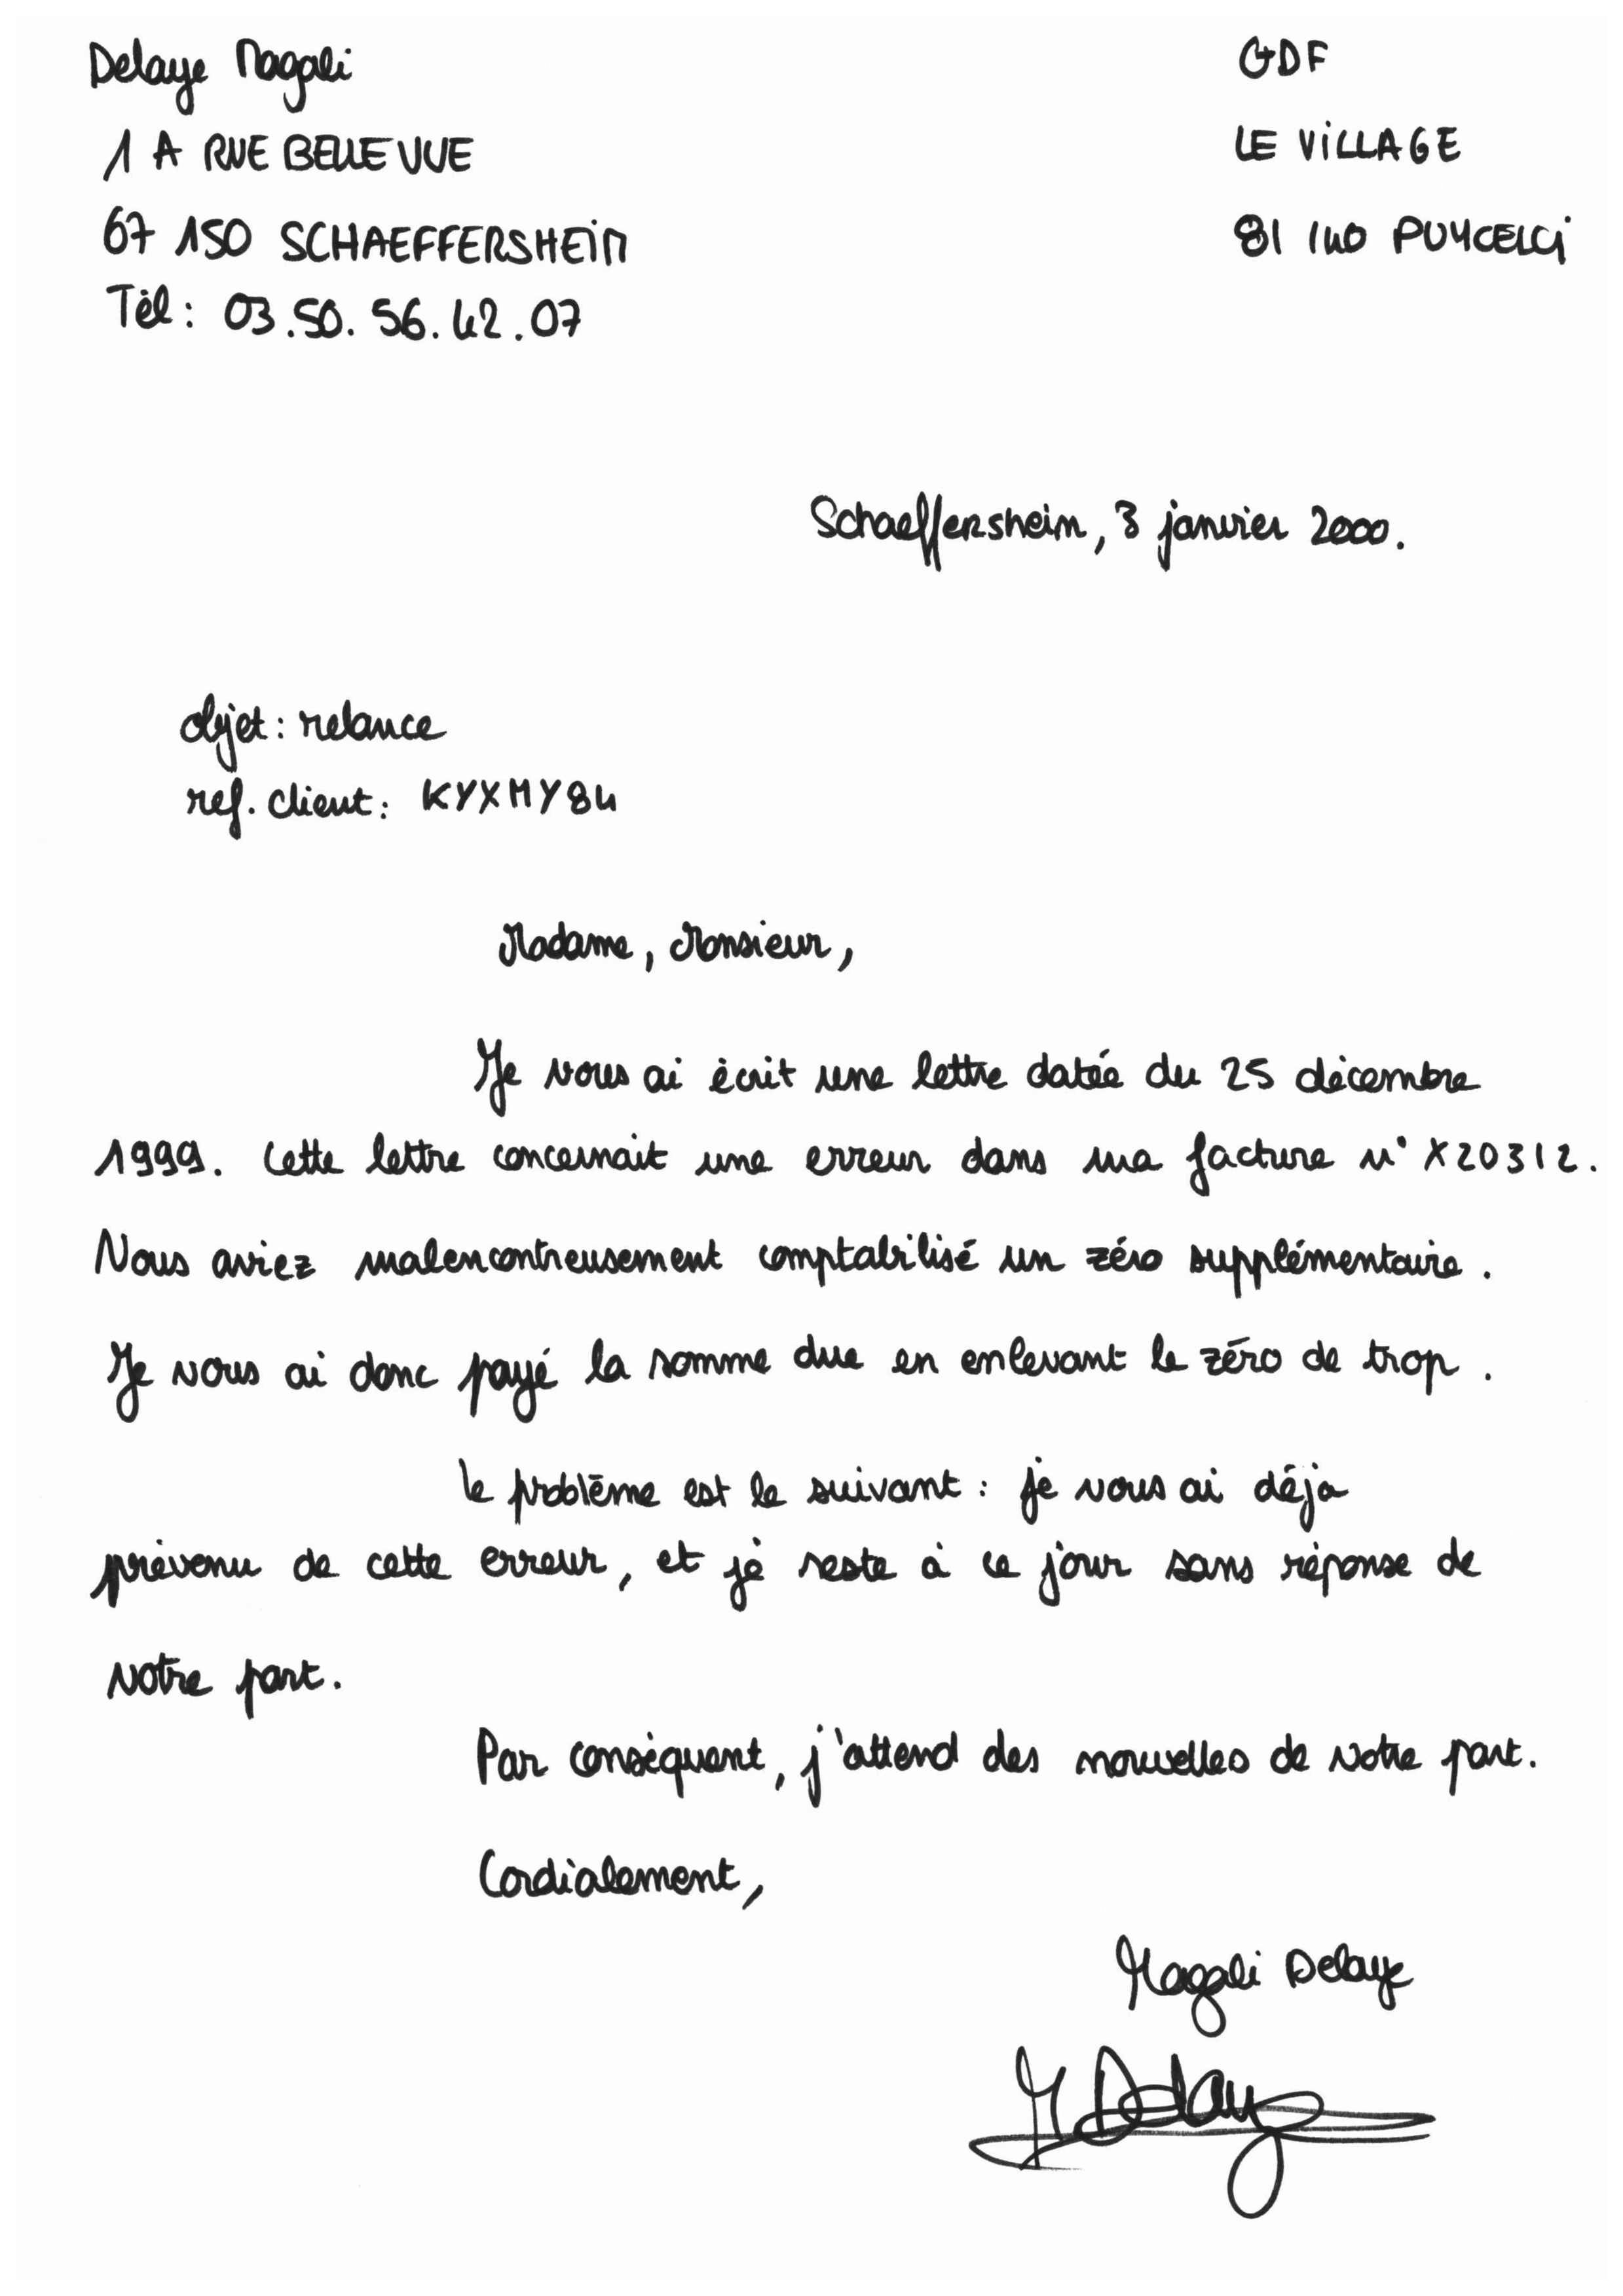 Delaye Magali
1 A RUE BELLE VUE
67 150 SCHAEFFERSHEIM
Tél : 03.50.56.42.07
GDF
LE VILLAGE
81 140 PUYCELCI
Schaeffersheim, 3 janvier 2000.
objet : relance
ref. client : KYXMY84
Madame, Monsieur,
Je vous ai écrit une lettre datée du 25 décembre
1999. Cette lettre concernait une erreur dans ma facture n° X20312.
Vous aviez malencontreusement comptabilisé un zéro supplémentaire.
Je vous ai donc payé la somme due en enlevant le zéro de trop.
Le problème est le suivant : je vous ai déja
prévenu de cette erreur, et je reste à ce jour sans réponse de
votre part.
Par conséquent, j'attend des nouvelles de votre part.
Cordialement,
Magali Delaye
M Delaye